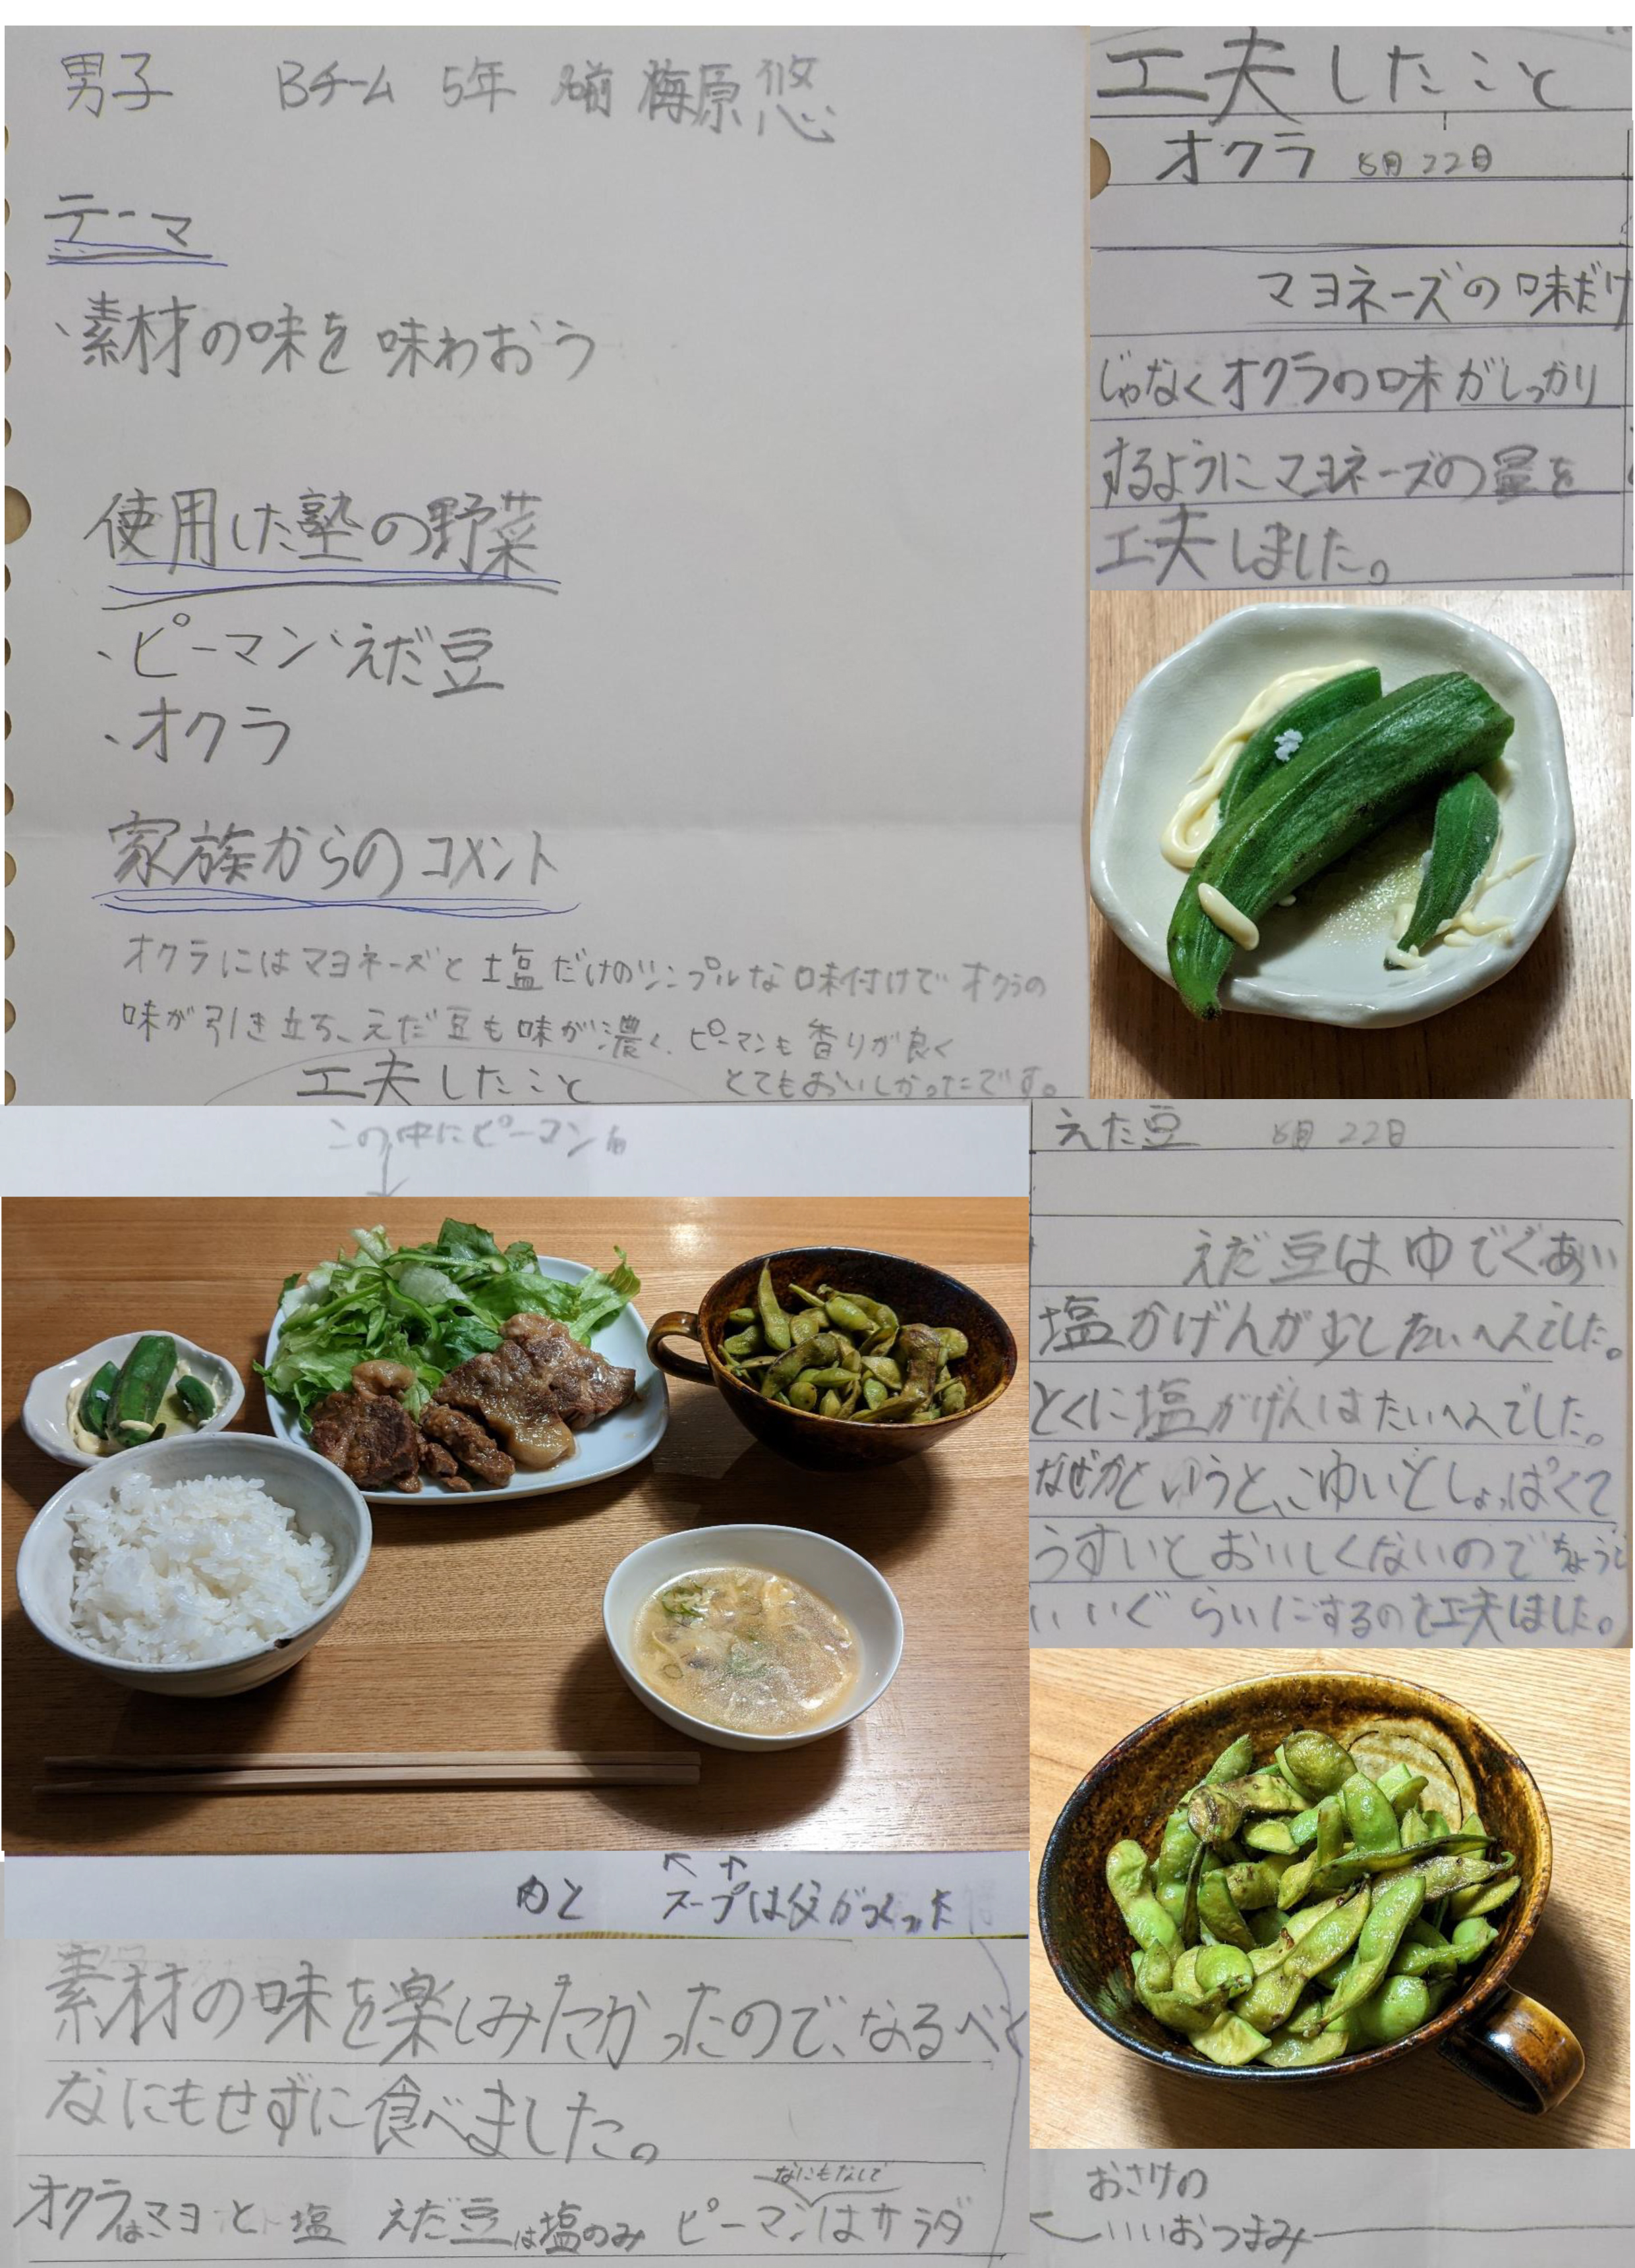 男子 Bチーム 5年 名前 梅原悠
テーマ
・素材の味を味わおう
使用した塾の野菜
・ピーマン・えだ豆
・オクラ
家族からのコメント
オクラにはマヨネーズと塩だけのシンプルな味付けでオクラの
味が引き立ち、えだ豆も味が濃く、ピーマンも香りが良く
とてもおいしかったです。
工夫したこと
オクラ 6月22日
マヨネーズの味だけ
じゃなくオクラの味がしっかり
するようにマヨネーズの量を
工夫しました。
工夫したこと
この中にピーマン
えだ豆 6月22日
えだ豆はゆでぐあい
塩かげんが少したいへんでした。
とくに塩かげんはたいへんでした。
なぜかというと、こゆいとしょっぱくて
うすいとおいしくないのでちょうど
いいぐらいにするのを工夫しました。
肉と スープは父がつくった
素材の味を楽しみたかったので、なるべく
なにもせずに食べました。
なにもなしで
オクラはマヨと塩 えだ豆は塩のみ ピーマンはサラダ
おさけの
いいおつまみ